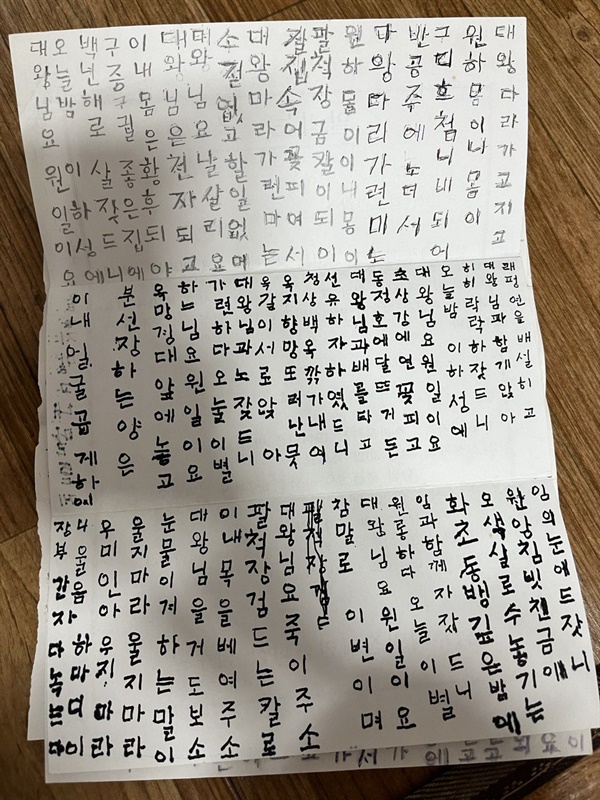 대왕따라가고지고
원하몸이나몸이
구디흐첨니비되어
반공주에노더서
다왕따리가련미는
원하몰이이내몽이
팔척장금칼이되이
질집속어꽃피여서
대왕마라가렌마는
소절없고할일없어
대왕님요날살리요
대왕님은천자되고
이내몸은황후되야
구중궁궐좋은집에
백년해로살잣드니
오늘밤이하성에
대왕님요원일이요
래평연을배설히고
대왕님파함게앉아
히히락락하잣드니
오늘밤이하성에
대왕님요원일이요
소상강에연꽃피고
동정호에달뜨거든
대왕님과배를타고
선유하자하였드니
청상백옥깎가내여
옥지향망또러난뭇
옥갈이서로앉아
대왕님과노잣드니
가련하다오눌이별
하느님요원일이요
옥망경대앞에놓고
분선장하는양은
이내얼굴곱게하에
임의눈에드잣니
원앙침빗챈금에
오색실로수놓기는
화초동뱅깊은밤에
임과함께자잣드니
원통하다오늘이별
대왕님요원일이요
참말로이변이며
대왕님요죽이주소
팔척장검드는칼로
이내목을베여주소
대왕님을거도보소
눈물이게하는말이
울지마라울지마라
우미인아우지마라
너울음하마디이
장부간자다녹는다